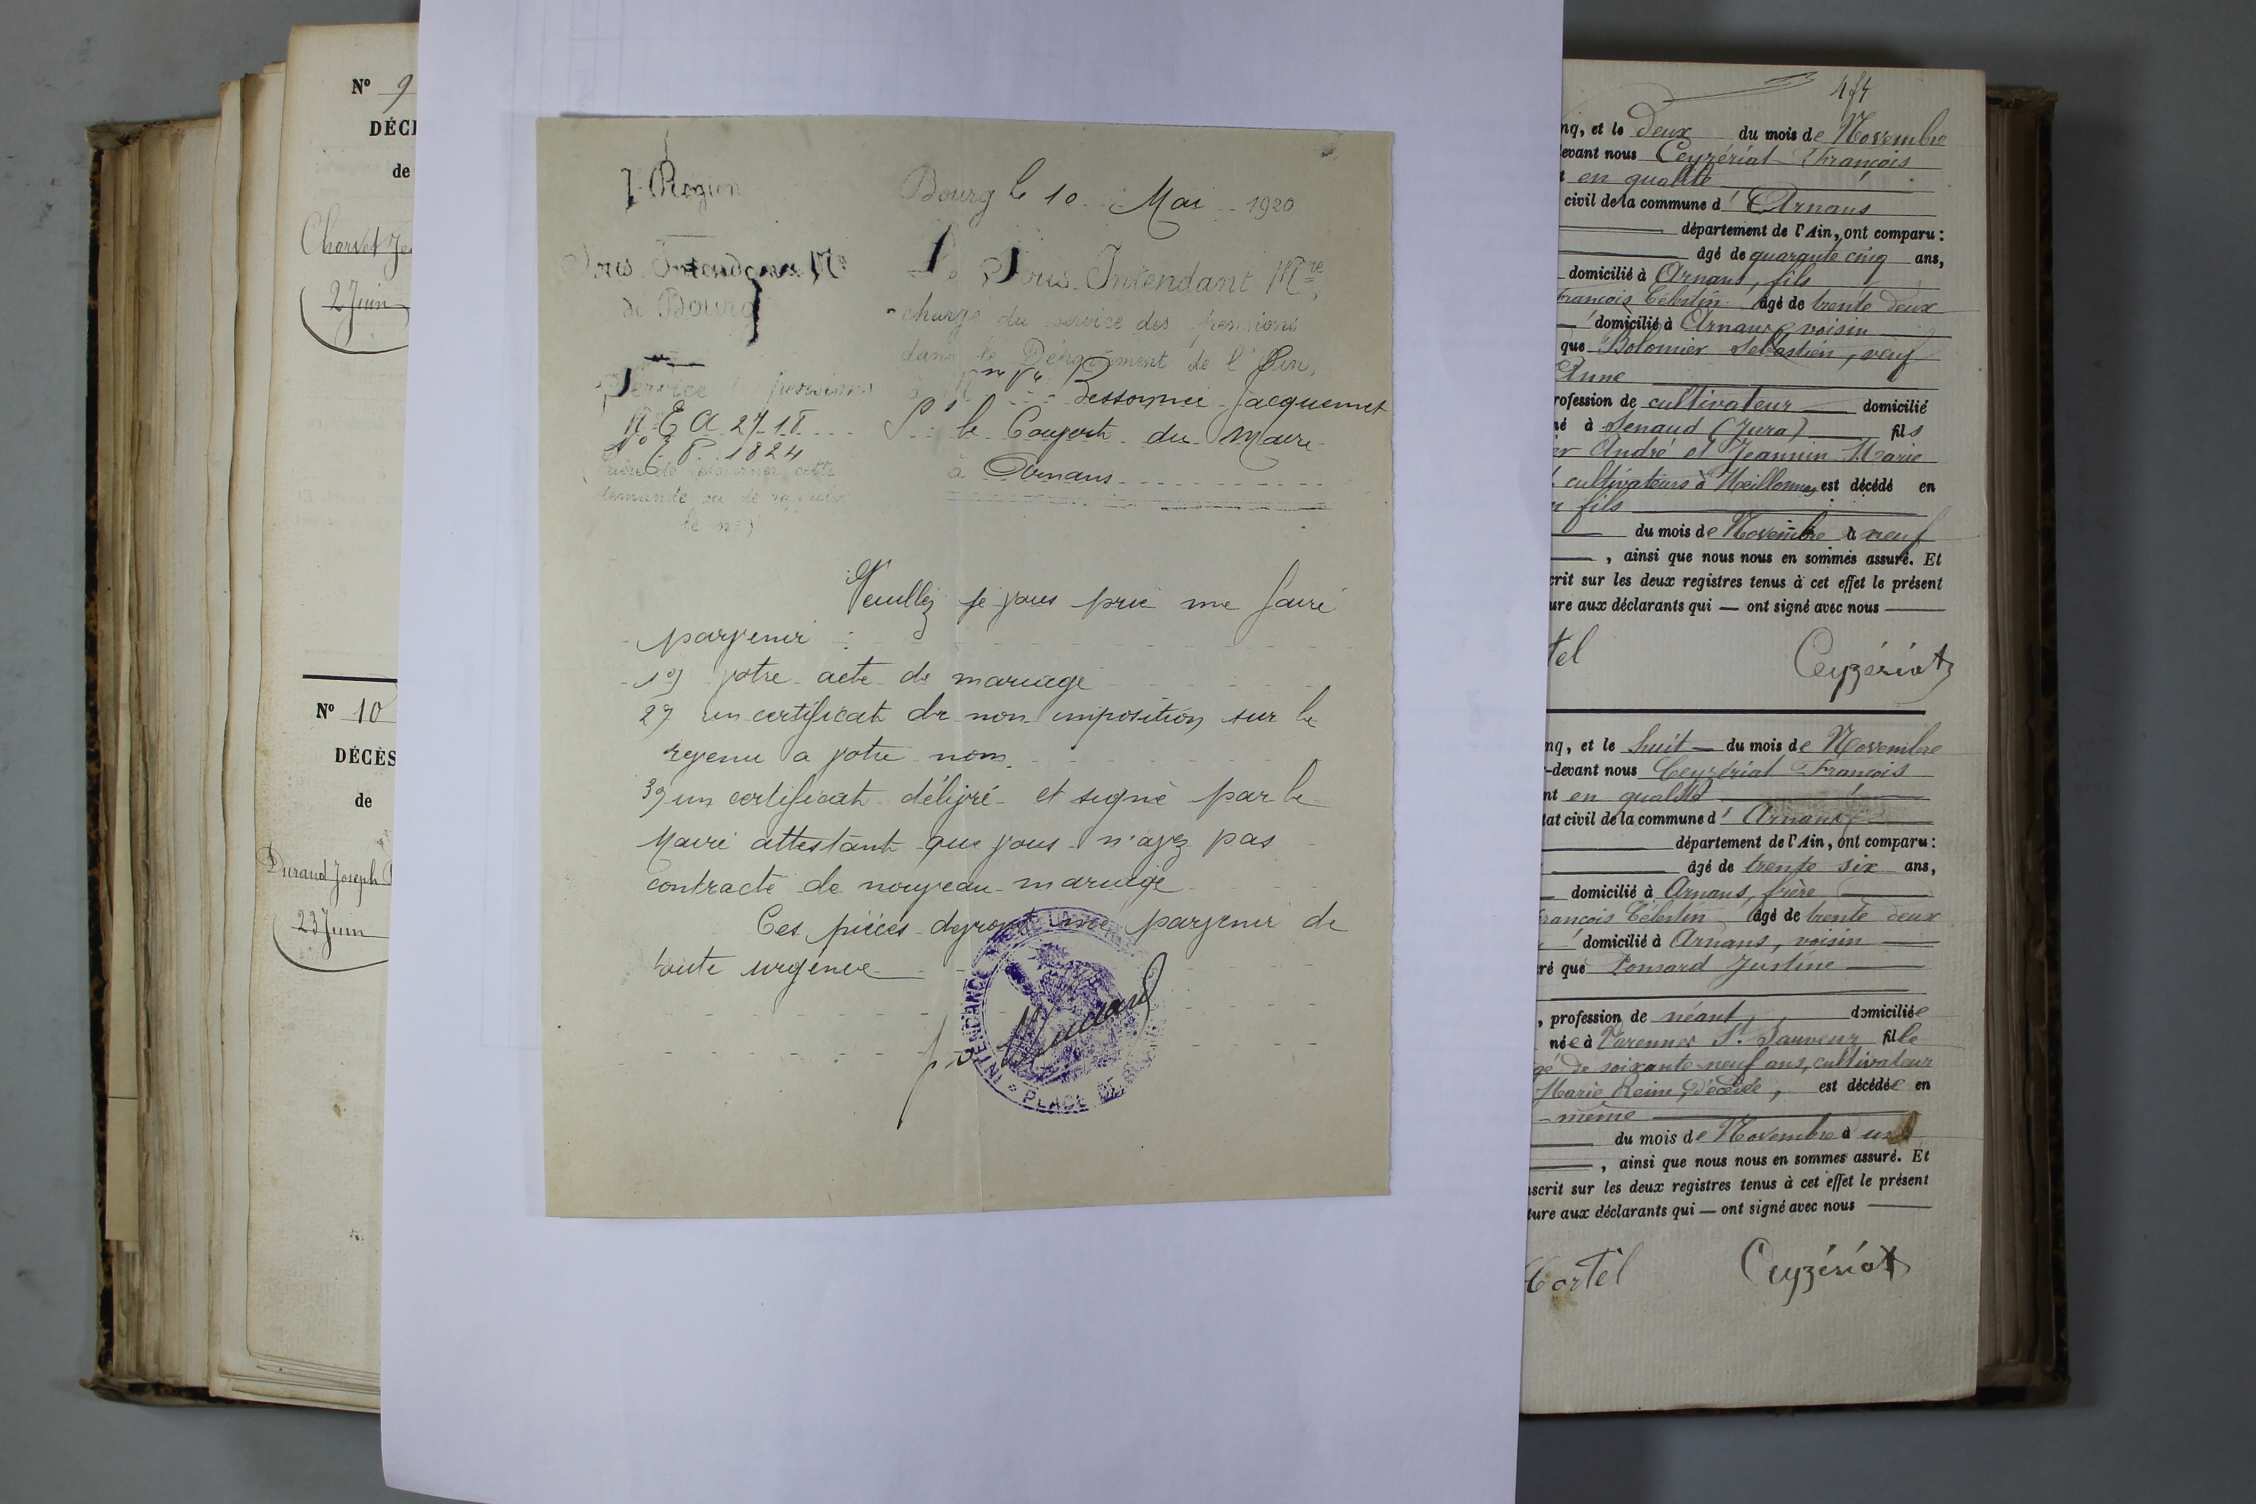 Nº 9
DÉCÈ
de
Charvet Je
2 Juin
Nº 10
DÉCÈS
de
Durand Joseph
23 Juin
7e Région
Sous Intendance Mre
de Bourg
Service pensions
N° E A 27.18
N° E P 1824
Prière de retourner cette
demande ou de rappeler
le n°)
Bourg le 10 Mai 1920
Le Sous Intendant Mre
chargé du service des pensions
dans le Département de l'Ain,
à Mme Vve Bessonnée Jacquemet
S/ le Couvert du Maire
à Arnans
Veuillez je vous prie me faire
parvenir :
1°) votre acte de mariage
2°) un certificat de non imposition sur le
revenu a votre nom.
3°) un certificat délivré et signé par le
Maire attestant que vous n'avez pas
contracté de nouveau mariage
Ces pièces devront me parvenir de
toute urgence
INTENDANCE
PLACE DE
nq, et le deux du mois de Novembre
evant nous Ceyzériat François
en qualité
civil de la commune d' Arnans
département de l'Ain, ont comparu :
âgé de quarante cinq ans,
domicilié à Arnans, fils
François Célestin âgé de trente deux
domicilié à Arnans, voisin
que Bolomier Sébastien, veuf
Anne
rofession de cultivateur domicilié
né à Senaud (Jura) fils
er André et Jeannin Marie
cultivateurs à Meillonnas, est décédé en
fils
du mois de Novembre à neuf
, ainsi que nous nous en sommes assuré. Et
crit sur les deux registres tenus à cet effet le présent
ure aux déclarants qui — ont signé avec nous
tel Ceyzériat
nq, et le huit du mois de Novembre
-devant nous Ceyzériat François
nt en qualité
tat civil de la commune d' Arnans
département de l'Ain, ont comparu :
âgé de trente six ans,
domicilié à Arnans, frère
François Célestin âgé de trente deux
domicilié à Arnans, voisin
ré que Ponsard Justine
, profession de néant, domiciliée
née à Varennes St Sauveur fille
gé de soixante neuf ans, cultivateur
Marie Reine, décédée, est décédée en
même
du mois de Novembre à une
, ainsi que nous nous en sommes assuré. Et
nscrit sur les deux registres tenus à cet effet le présent
ture aux déclarants qui — ont signé avec nous
Cortel Ceyzériat